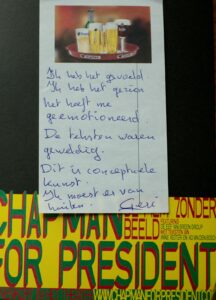 Ik heb het gevoeld
Ik heb het gezien
het heeft me
geëmotioneerd
De teksten waren
geweldig.
Dit is conceptuele
kunst.
Ik moest er van
huilen.
CHAPMAN
ZONDER
BEELD
FOR PRESIDENT
WWW.CHAPMANFORPRESIDENT.CO